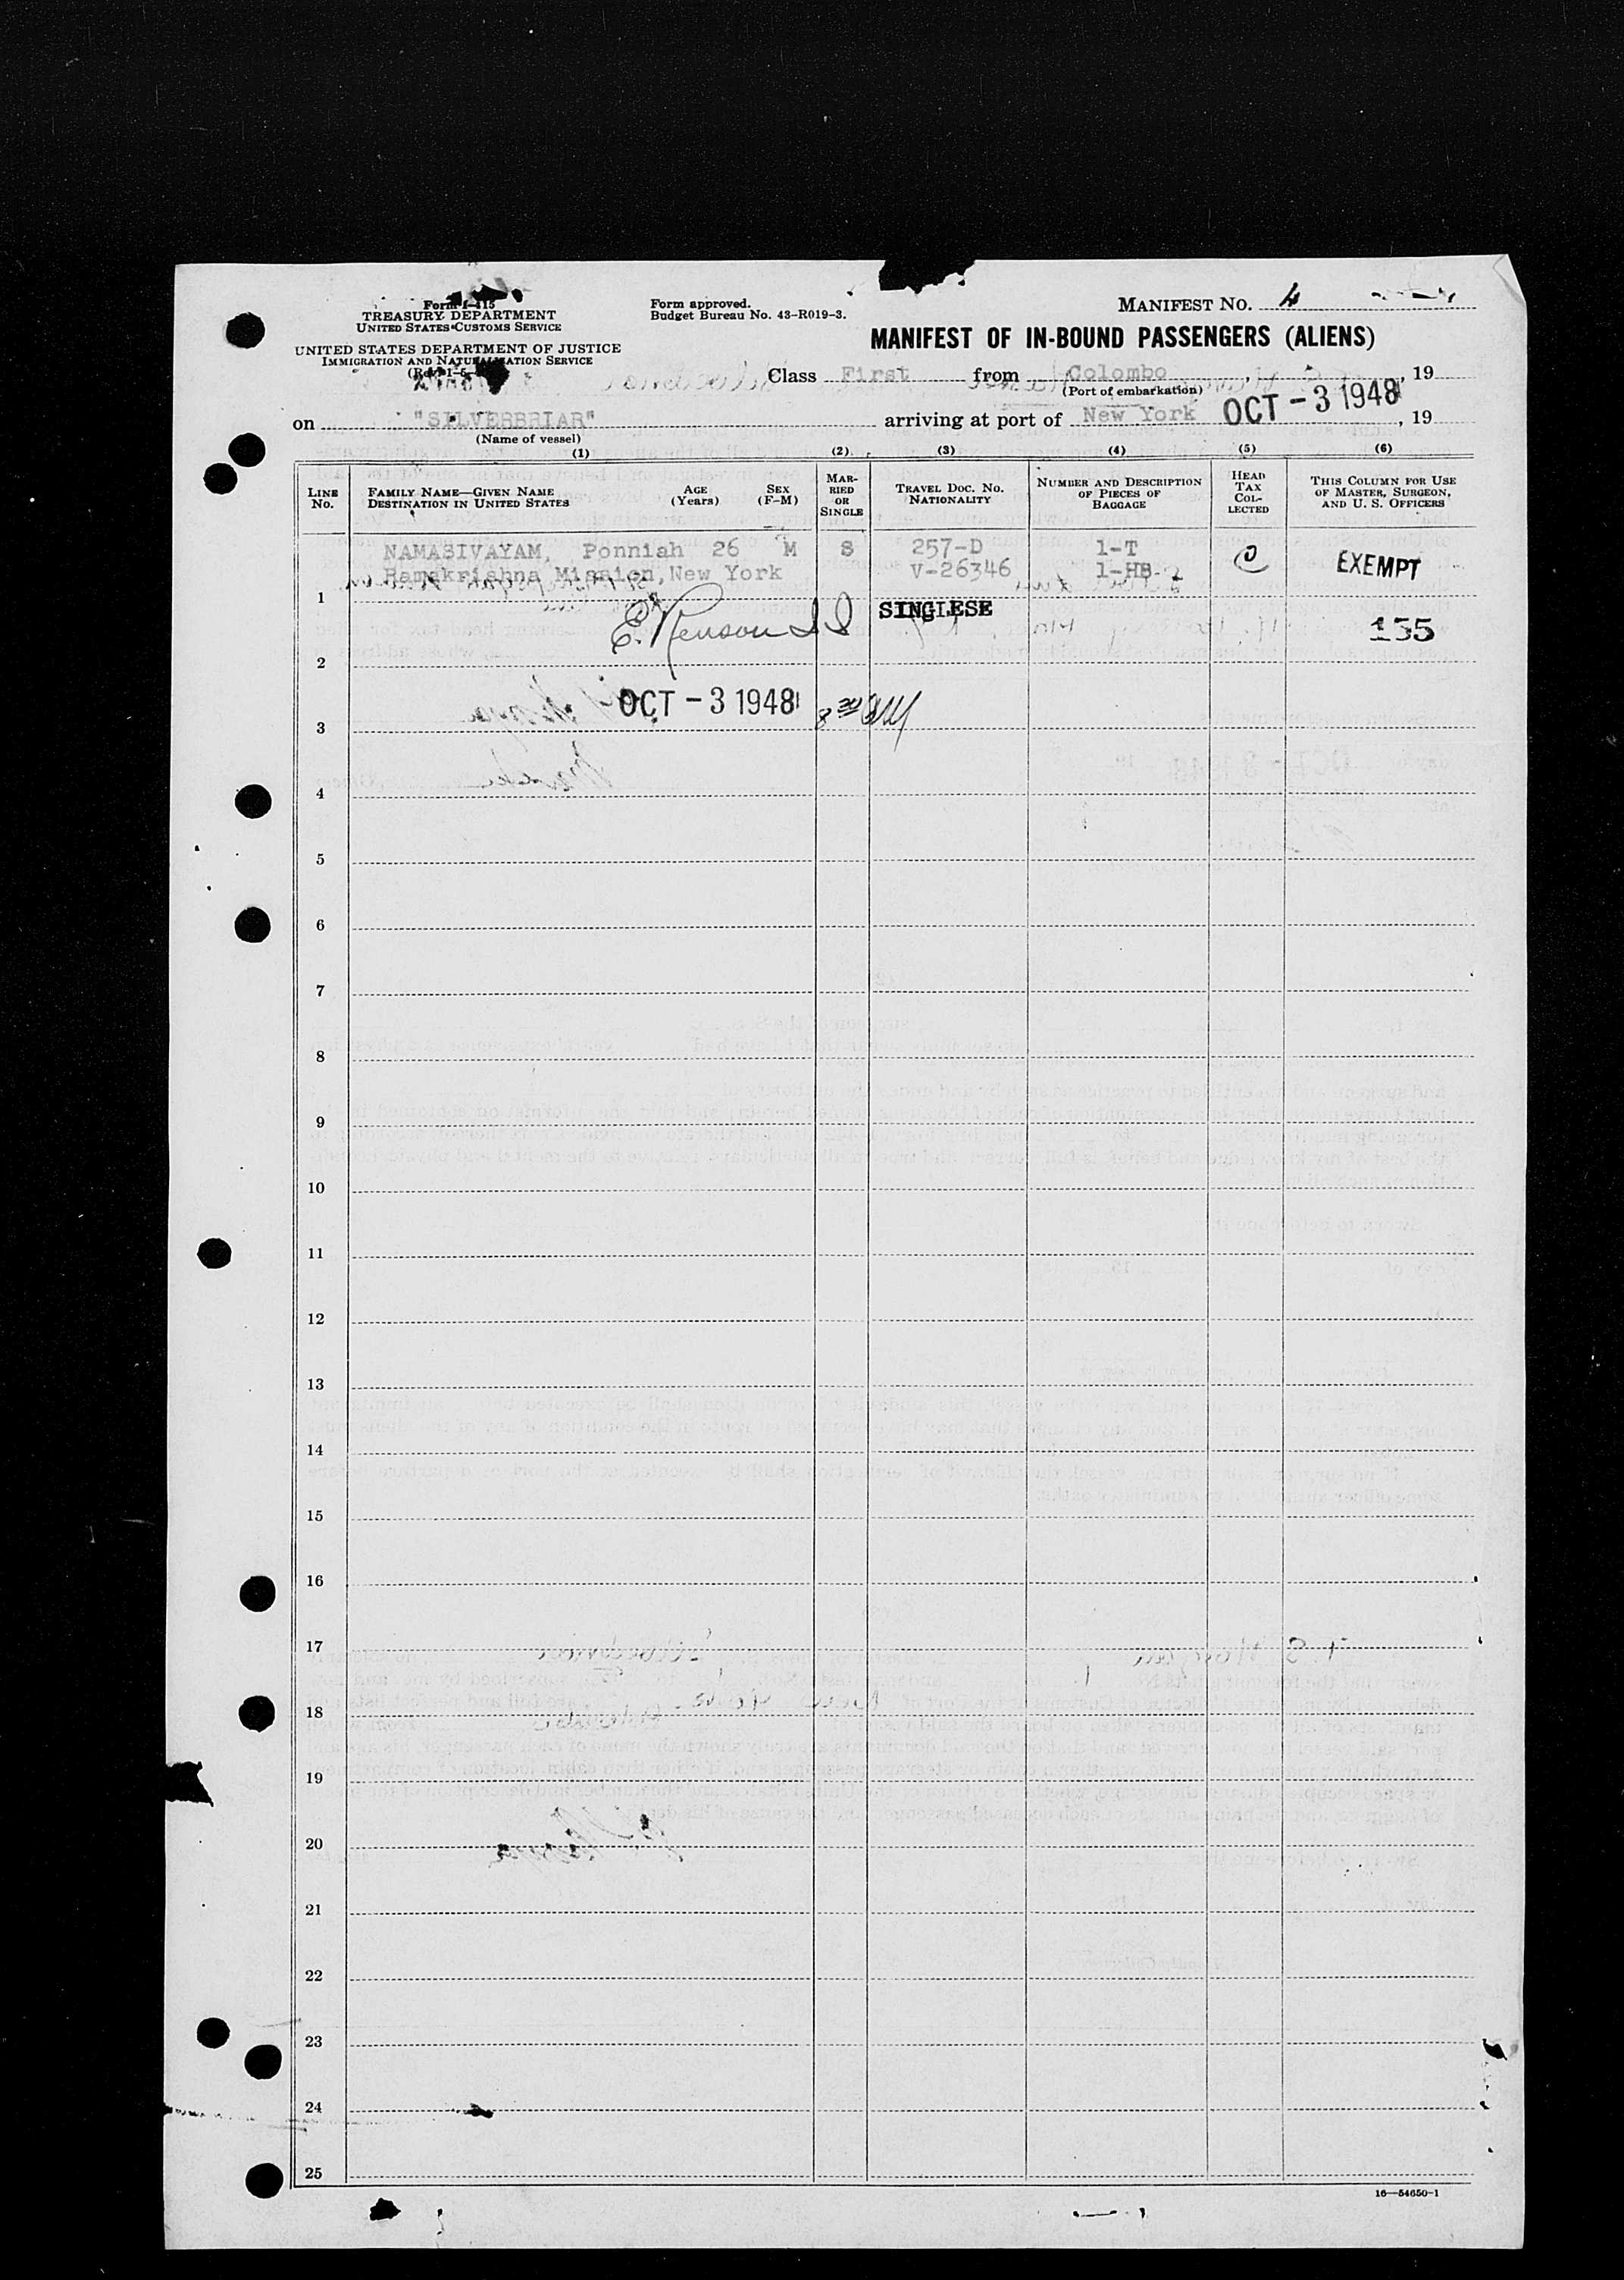 Form I-415
TREASURY DEPARTMENT
UNITED STATES CUSTOMS SERVICE
UNITED STATES DEPARTMENT OF JUSTICE
IMMIGRATION AND NATURALIZATION SERVICE
Form approved.
Budget Bureau No. 43-R019-3.
MANIFEST NO. 4
MANIFEST OF IN-BOUND PASSENGERS (ALIENS)
Class First from Colombo, 19
(Port of embarkation)
on "SILVERBRIAR" arriving at port of New York OCT - 3 1948, 19
(Name of vessel)
(1) (2) (3) (4) (5) (6)
LINE NO. FAMILY NAME—GIVEN NAME DESTINATION IN UNITED STATES AGE (Years) SEX (F-M) MARRIED OR SINGLE TRAVEL DOC. NO. NATIONALITY NUMBER AND DESCRIPTION OF PIECES OF BAGGAGE HEAD TAX COLLECTED THIS COLUMN FOR USE OF MASTER, SURGEON, AND U. S. OFFICERS
NAMASIVAYAM, Ponniah 26 M S 257-D 1-T
Ramakrishna Mission, New York V-26346 1-HB EXEMPT
1
SINGLESE 135
2
OCT - 3 1948
3
4
5
6
7
8
9
10
11
12
13
14
15
16
17
18
19
20
21
22
23
24
25
16—54650-1